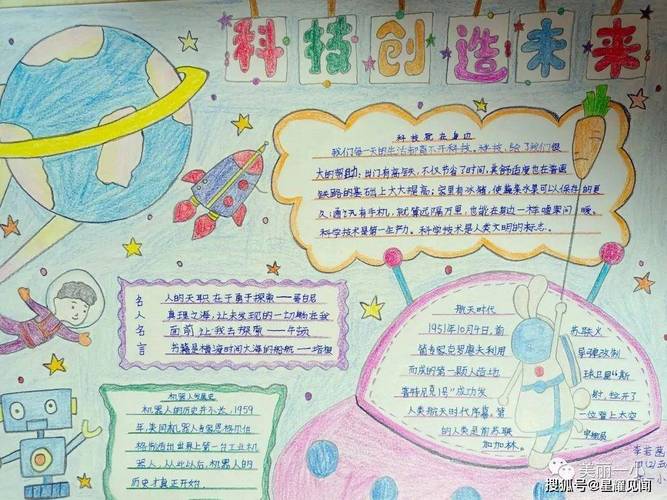 科技创造未来
科技就在身边
我们每一天的生活都离不开科技。科技,给了我们很
大的帮助:出门有高铁,不仅节省了时间,其舒适度也在普通
铁路的基础上大大提高;家里有冰箱,使蔬果水果可以保存的更
久;通讯有手机,就算远隔万里,也能在身边一样嘘寒问暖。
科学技术是第一生产力。科学技术是人类文明的标志。
名人名言
人的天职在于勇于探索——哥白尼
真理之海,让未发现的一切躺在我
面前,让我去探索——牛顿
书籍是横渡时间大海的船航——培根
机器人发展史
机器人的历史并不长,1959
年,美国机器人专家恩格尔伯
格制造出世界上第一台工业机
器人,从此以后,机器人的
历史才真正开始
航天时代
1951年10月4日,前苏联义
箭专家克罗廖夫利用导弹改制
而成的第一颗人造地球卫星“斯
普特尼克1号”成功发射,拉开了
人类航天时代序幕,第一位登上太空
的人类是前苏联宇航员
加加林。
美丽一小
搜狐号@星耀见闻